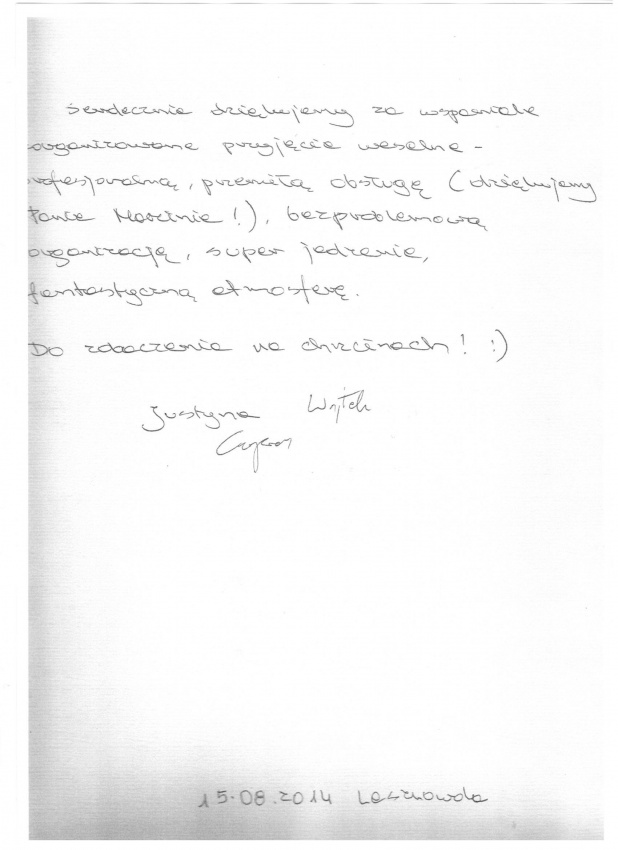 Serdecznie dziękujemy za wspaniale
organizowane przyjęcie weselne -
rofesjonalną, przemiłą obsługę (dziękujemy
Panie Marcinie!), bezproblemową
organizację, super jedzenie,
fantastyczną atmosferę.
Do zobaczenia na chrzcinach! :)
Justyna Wojtek
15.08.2014 Lesznowola